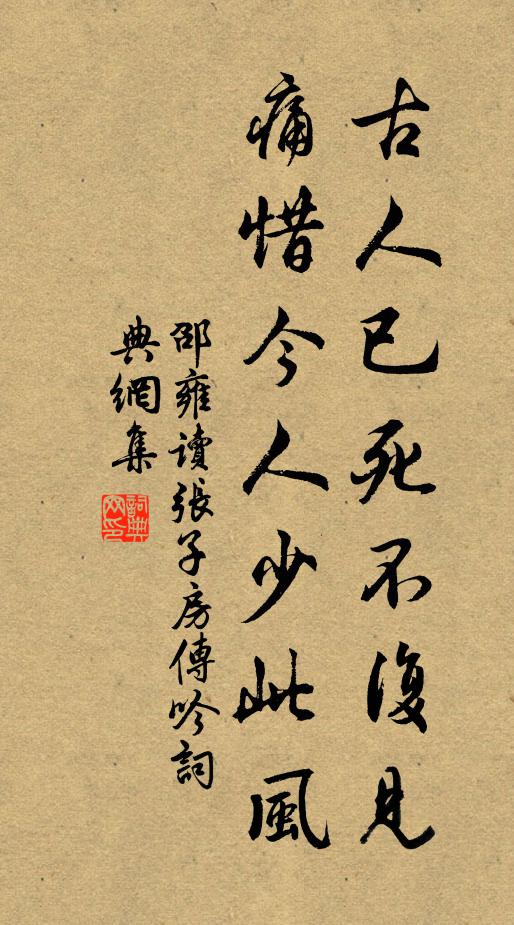 古人已死不復見
痛惜今人少此風
邵雍讀張子房傳吟詞
典網集
詞典
网印